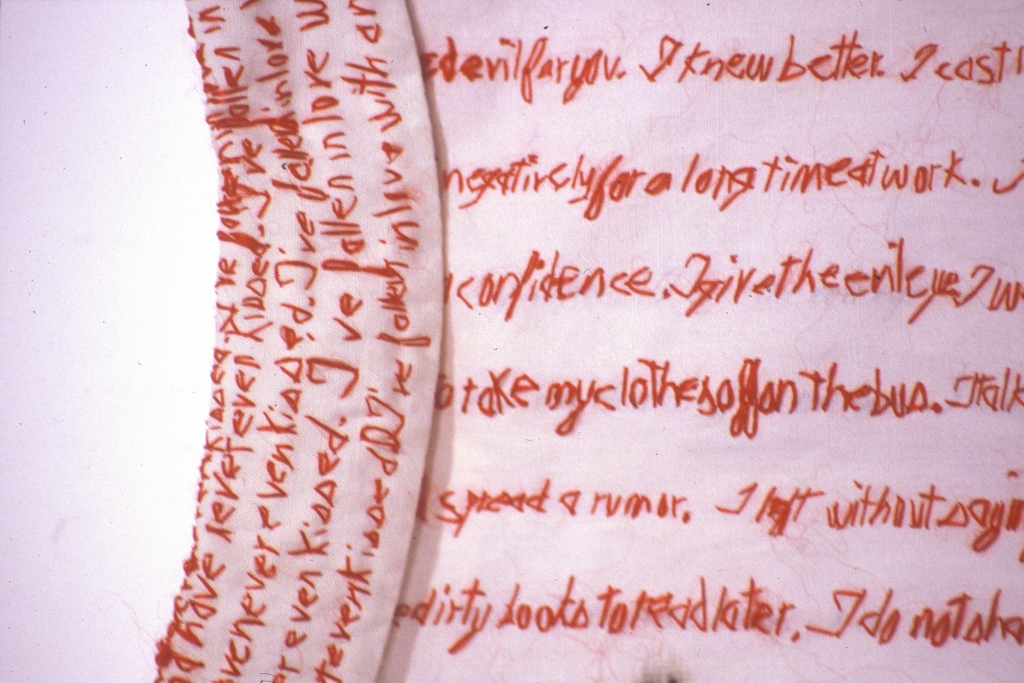 devil for you. I knew better. I cast
negatively for a long time at work. I
confidence. I give the evil eye. I w
take my clothes off on the bus. I talk
spread a rumor. I left without sayin
dirty books to read later. I do not sha
fallen in
even kissed. I've fallen in love
never even kissed. I've fallen in love w
even kissed. I've fallen in love with an
even kissed I've fallen in love with an